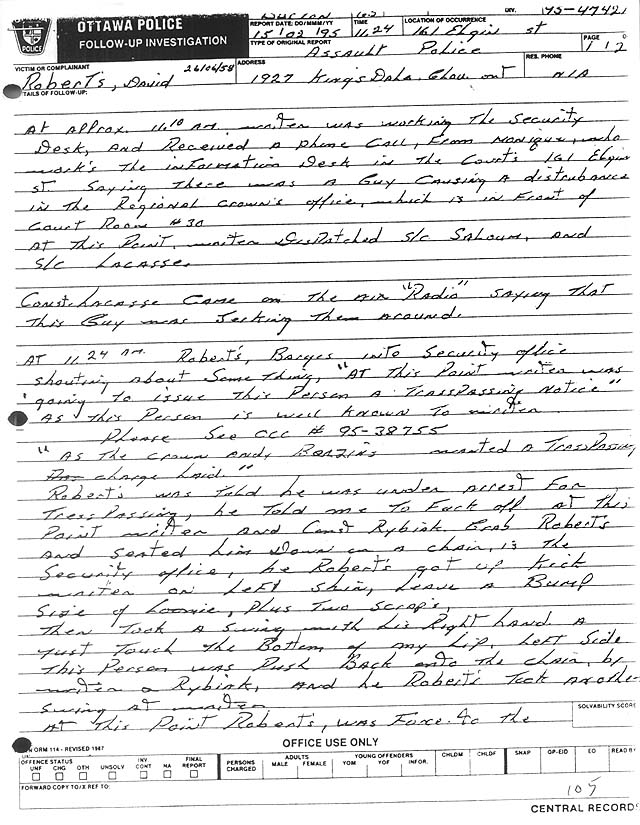 OTTAWA POLICE
FOLLOW-UP INVESTIGATION
POLICE
DIV.
95-47421
REPORT DATE: DD/MM/YY
15 02 95
TIME
11.24
LOCATION OF OCCURRENCE
161 Elgin st
TYPE OF ORIGINAL REPORT
Assault Police
PAGE
1 | 2
VICTIM OR COMPLAINANT
Roberts, David 26/06/58
ADDRESS
1927 King's Dale, Glou. ont
RES. PHONE
N/A
DETAILS OF FOLLOW-UP:
At Approx. 11.10 AM. writer was working The Security
Desk, And Received A phone Call, From Monique, who
work's The inFormation Desk in The Court's 161 Elgin
st Saying There was A Guy Causing A disturbance
in The Regional Crown's office, which is in Front of
Court Room #30
At This Point, writer disPatched S/c Saloum, And
S/c Lacasse.
Const. Lacasse Came on The Air "Radio" saying That
This Guy was Jerking Them around.
AT 11.24 AM. Robert's, Barges into Security office
shouting about SomeThing, "AT This Point writer was
going To issue This Person A TressPassing Notice"
As This Person is well Known To writer.
Please See CCC # 95-38755
"As The Crown Andy wanted A TressPassing
charge Laid."
Robert's was Told he was under arrest For
TressPassing, he Told me To Fuck off AT This
Point writer And Const Rybisk Grab Roberts
And Seated him Down on A chair, in The
Security office, he Roberts got up Kick
writer on LeFT Shin, Leave A Bump
Size of Loonie, Plus Two Scrap's,
Then Took A Swing with his Right hand &
Just Touch The Bottom of my Lip, LeFT Side
This Person was Push Back onto The Chair, by
writer & Rybisk, And he Robert's Took Another
Swing at writer
AT This Point Roberts, was Force To The
SOLVABILITY SCORE
FORM 114 - REVISED 1987
OFFICE USE ONLY
OFFENCE STATUS
UNF CHG OTH UNSOLV
INV CONT
NA
FINAL REPORT
PERSONS CHARGED
ADULTS
MALE FEMALE
YOUNG OFFENDERS
YOM YOF INFOR.
CHLDM
CHLDF
SNAP
OP-EID
EO
READ BY
FORWARD COPY TO/X REF TO:
105
CENTRAL RECORDS